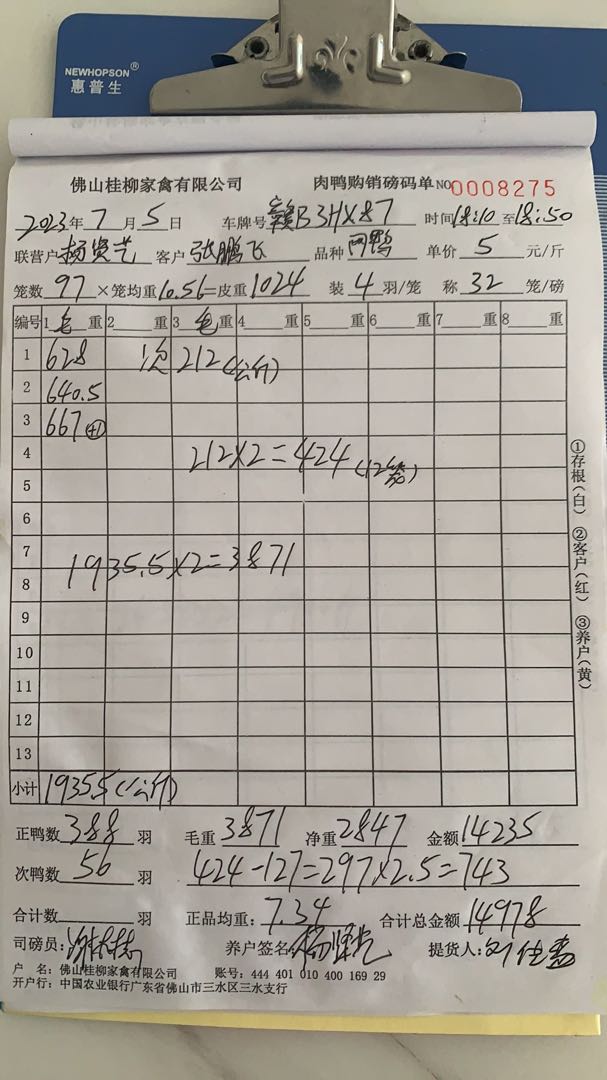 NEWHOPSON®
惠普生
佛山桂柳家禽有限公司 肉鸭购销磅码单 NO 0008275
2023年7月5日 车牌号 赣B3HX87 时间18:10至18:50
联营户 杨贤艺 客户 张鹏飞 品种 网鸭 单价 5 元/斤
笼数 97 ×笼均重10.56=皮重1024 装 4 羽/笼 称 32 笼/磅
编号 1 毛 重 2 重 3 毛 重 4 重 5 重 6 重 7 重 8 重
1 628 次 212(公斤)
2 640.5
3 667 +1
4 212×2=424 (12笼)
5
6
7 1935.5×2=3871
8
9
10
11
12
13
小计 1935.5(公斤)
正鸭数 388 羽 毛重 3871 净重 2847 金额 14235
次鸭数 56 羽 424-127=297×2.5=743
合计数 羽 正品均重: 7.34 合计总金额 14978
司磅员: 养户签名 提货人:
户 名: 佛山桂柳家禽有限公司 账号: 444 401 010 400 169 29
开户行: 中国农业银行广东省佛山市三水区三水支行
①存根(白) ②客户(红) ③养户(黄)